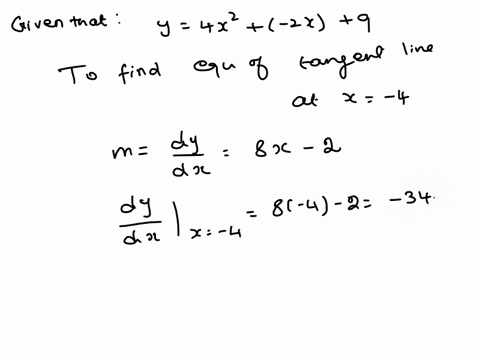 Given that: y = 4x² + (-2x) + 9
To find equ of tangent line
at x = -4
m = dy/dx = 8x - 2
dy/dx |x=-4 = 8(-4) - 2 = -34